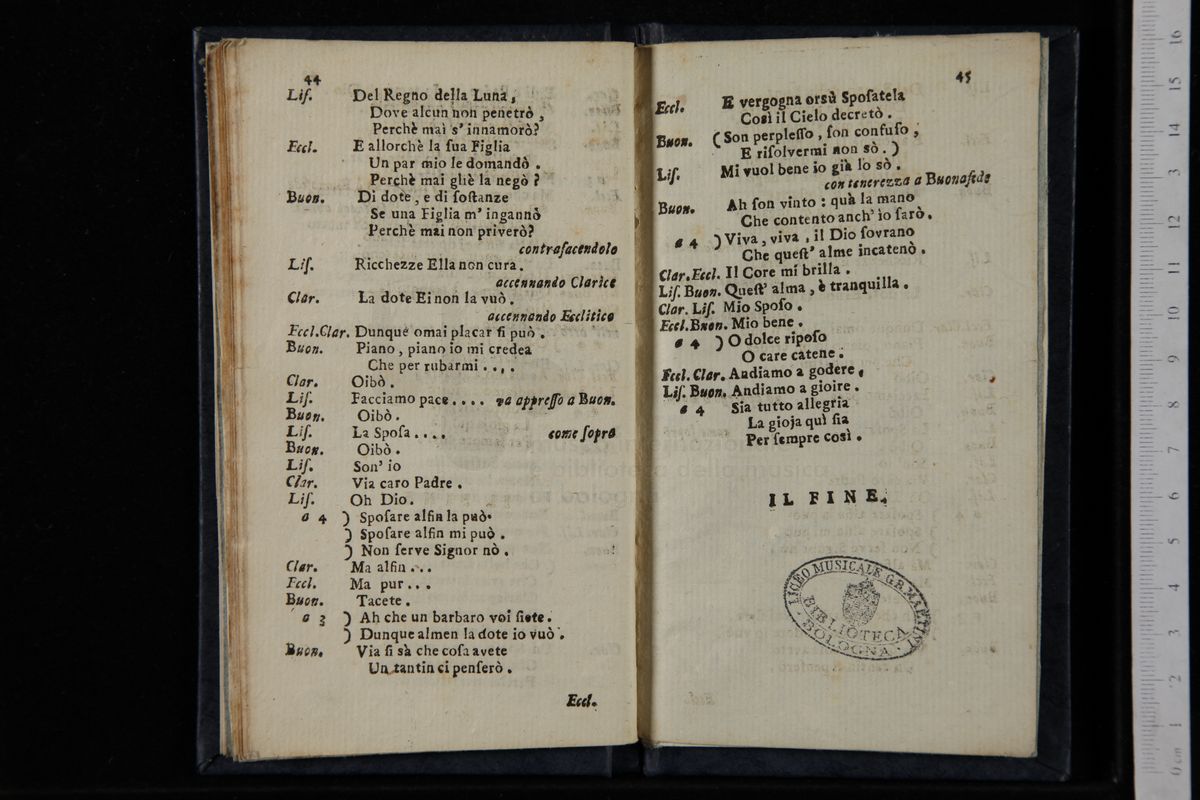 44
Lis. Del Regno della Luna,
Dove alcun non penetrò,
Perchè mai s' innamorò?
Eccl. E allorchè la sua Figlia
Un par mio le domandò.
Perchè mai gliè la negò?
Buon. Di dote, e di sostanze
Se una Figlia m' ingannò
Perchè mai non priverò?
contrafacendolo
Lis. Ricchezze Ella non cura.
accennando Clarice
Clar. La dote Ei non la vuò.
accennando Ecclitico
Eccl. Clar. Dunque omai placar si può.
Buon. Piano, piano io mi credea
Che per rubarmi....
Clar. Oibò.
Lis. Facciamo pace.... va appresso a Buon.
Buon. Oibò.
Lis. La Sposa.... come sopra
Buon. Oibò.
Lis. Son' io
Clar. Via caro Padre.
Lis. Oh Dio.
a 4 ) Sposare alfin la può.
) Sposare alfin mi può.
) Non serve Signor nò.
Clar. Ma alfin...
Eccl. Ma pur...
Buon. Tacete.
a 3 ) Ah che un barbaro voi siete.
) Dunque almen la dote io vuò.
Buon. Via si sà che cosa avete
Un tantin ci penserò.
Eccl.
45
Eccl. E vergogna orsù Sposatela
Così il Cielo decretò.
Buon. (Son perplesso, son confuso,
E risolvermi non sò.)
Lis. Mi vuol bene io già lo sò.
con tenerezza a Buonafede
Buon. Ah son vinto: quà la mano
Che contento anch' io sarò.
a 4 ) Viva, viva, il Dio sovrano
Che quest' alme incatenò.
Clar. Eccl. Il Core mi brilla.
Lis. Buon. Quest' alma, è tranquilla.
Clar. Lis. Mio Sposo.
Eccl. Buon. Mio bene.
a 4 ) O dolce riposo
O care catene.
Eccl. Clar. Andiamo a godere,
Lis. Buon. Andiamo a gioire.
a 4 Sia tutto allegria
La gioja quì sia
Per sempre così.
IL FINE.
LICEO MUSICALE G.B. MARTINI
BIBLIOTECA
BOLOGNA